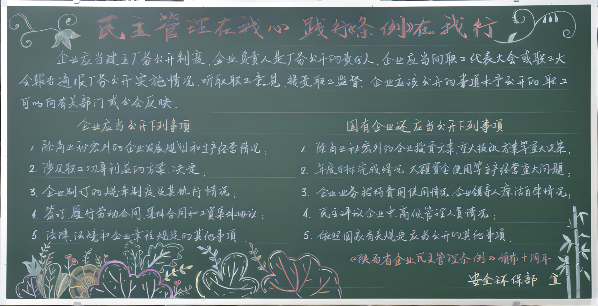 民主管理在我心 践行《条例》在我行
企业应当建立厂务公开制度，企业负责人是厂务公开的责任人，企业应当向职工代表大会或职工大
会报告通报厂务公开实施情况，听取职工意见，接受职工监督，企业应该公开的事项未予公开的，职工
可以向有关部门或公会反映。
企业应当公开下列事项
1. 除商业秘密外的企业发展规划和生产经营情况；
2. 涉及职工切身利益的方案、决定
3. 企业制订的规章制度及其执行情况；
4. 签订、履行劳动合同、集体合同和工资集体协议；
5. 法律、法规和企业章程规定的其他事项
国有企业还应当公开下列事项
1. 除商业秘密外的企业投资方案、重大方案
2. 年度目标完成情况、大额资金使用等生产经营重大问题；
3. 企业业务招待费用使用情况，企业领导人廉洁自律情况；
4. 民主评议企业中高级管理人员情况；
5. 依照国家有关规定应当公开的其他事项
《陕西省企业民主管理条例》颁布十周年
安全环保部 宣